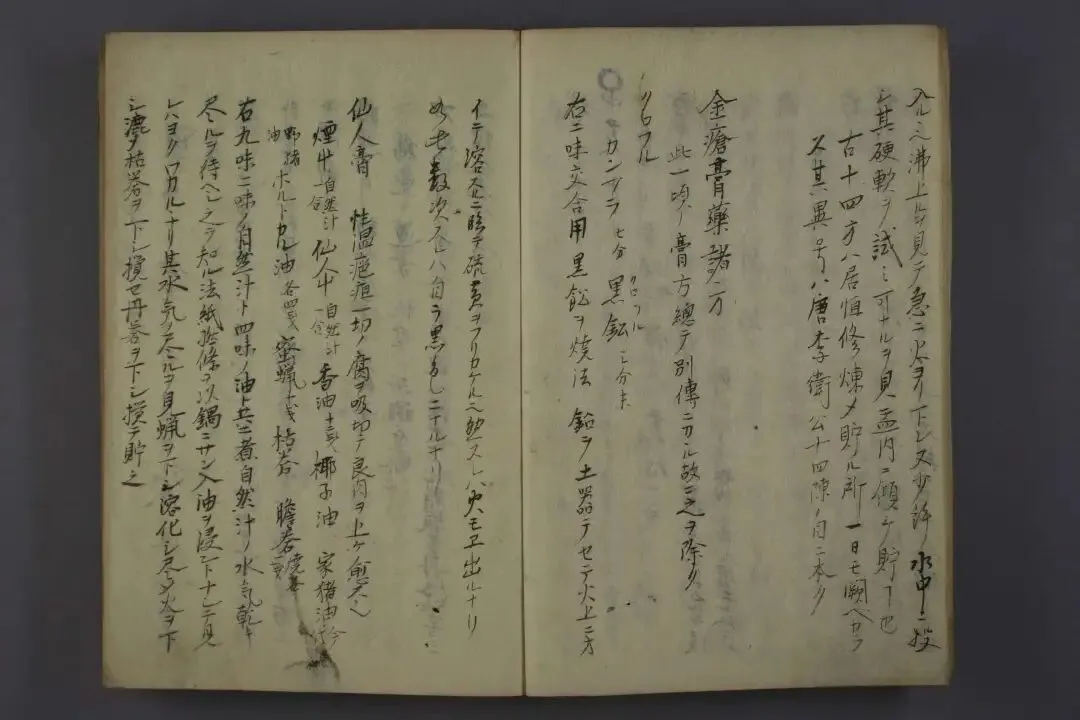 入ル之沸上ルヲ見テ急ニ火ヨリ下シ又少許水中ニ投
シ其硬軟ヲ試ミ可ナルヲ見盂内ニ傾ケ貯フ也
右十四方ハ居恒修煉メ貯ル所一日モ闕ヘカラス
其異号ハ唐李衛公十四陳ノ目ニ本ク
金瘡膏藥諸方
此一頃ノ膏方總テ別傳ニ乃ル故ニ之ヲ除ク
クロフル
カンフラ 七分 黒鉛 三分
クロフル
右二味交合用黒鉛ヲ燒法 鉛ヲ土器ニテセテ火上ニ
イテ溶スルニ臨テ硫黄ヲフリカケル之然スレハ火モヱ出ルナリ
如此数次スレハ自ラ黒ニナルナリ
仙人膏 性温瘡疽一切ノ腐ヲ吸切テ良肉ヲ上ケ愈ス
煙草自然汁一合 仙人草自然汁一合 香油 椰子油 家猪油
野猪油 ホルトカル油各四戔 蜜蝋 枯礬 膽礬
右九味二味ノ自然汁ト四味ノ油ト共ニ煮自然汁ノ水気乾キ
尽ルヲ待ヘシ之ヲ知ル法紙捻條ヲ以鍋ニサシ入油ヲ浸シ下ナニ見
レハヨクワカルナリ其水気ノ尽ルヲ見蝋ヲ下シ溶化シ尽メ火ヲ下
シ漉メ枯礬ヲ下シ攪セ丹礬ヲ下シ攪テ貯之